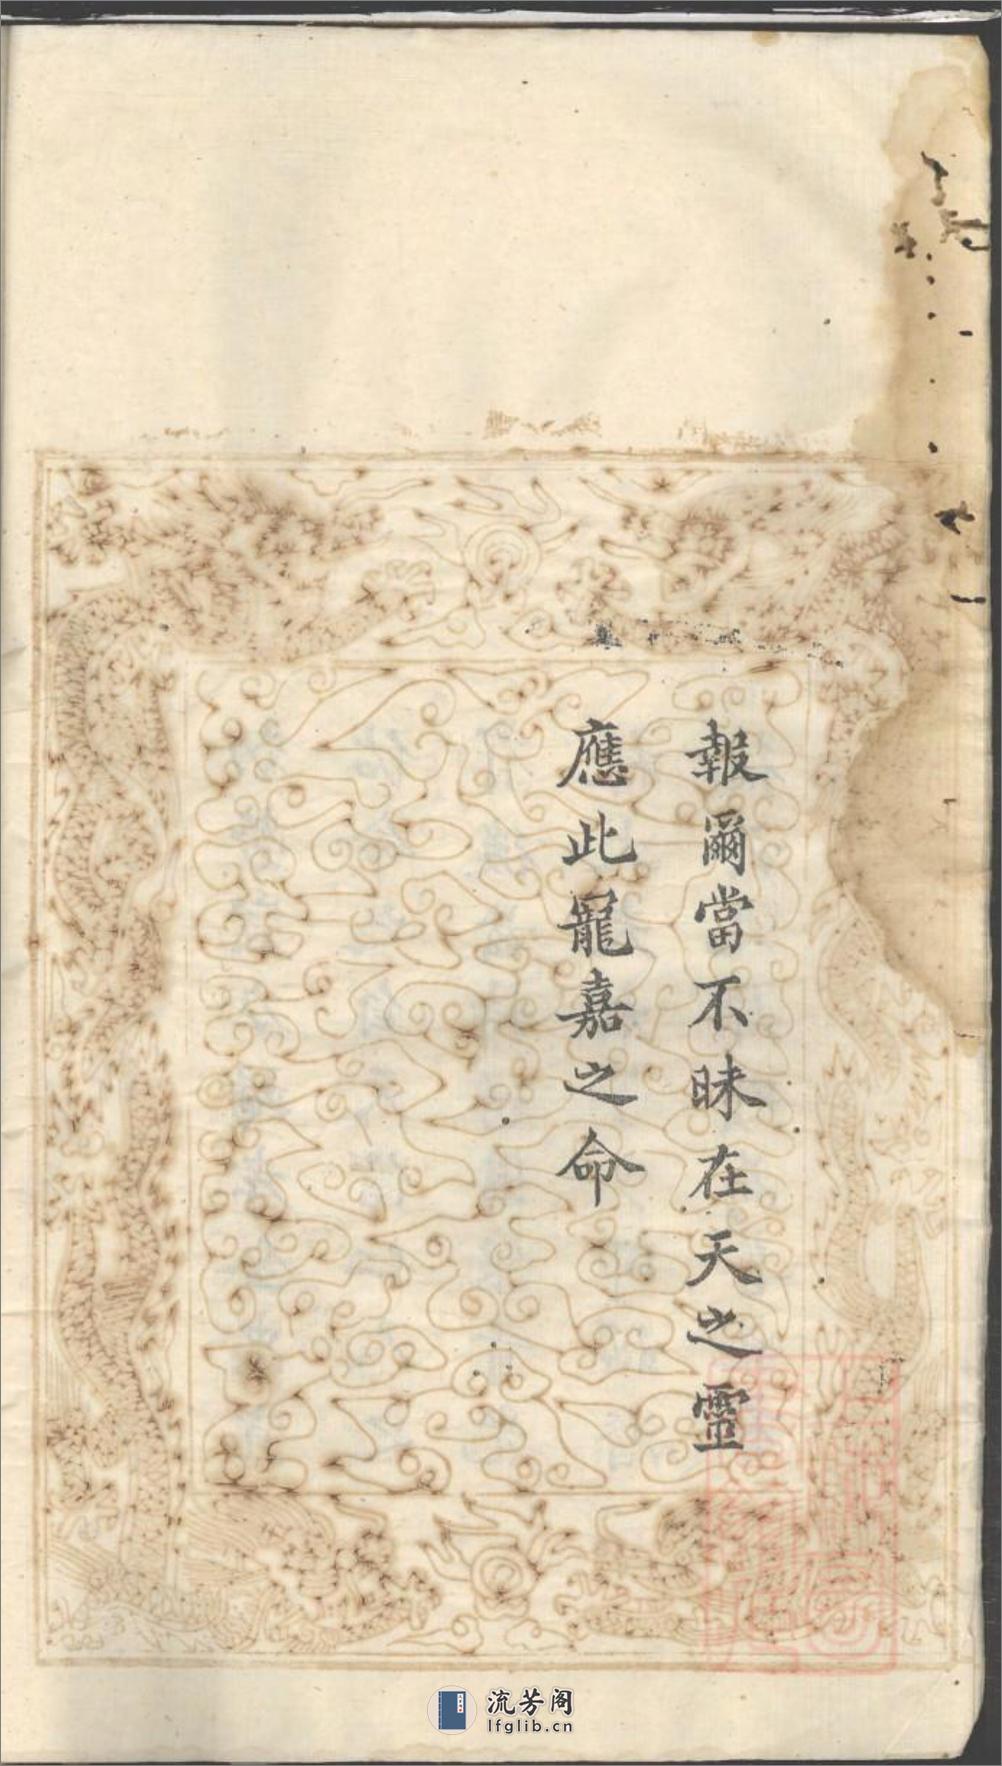 報爾當不昧在天之靈
應此寵嘉之命
流芳阁
lfglib.cn